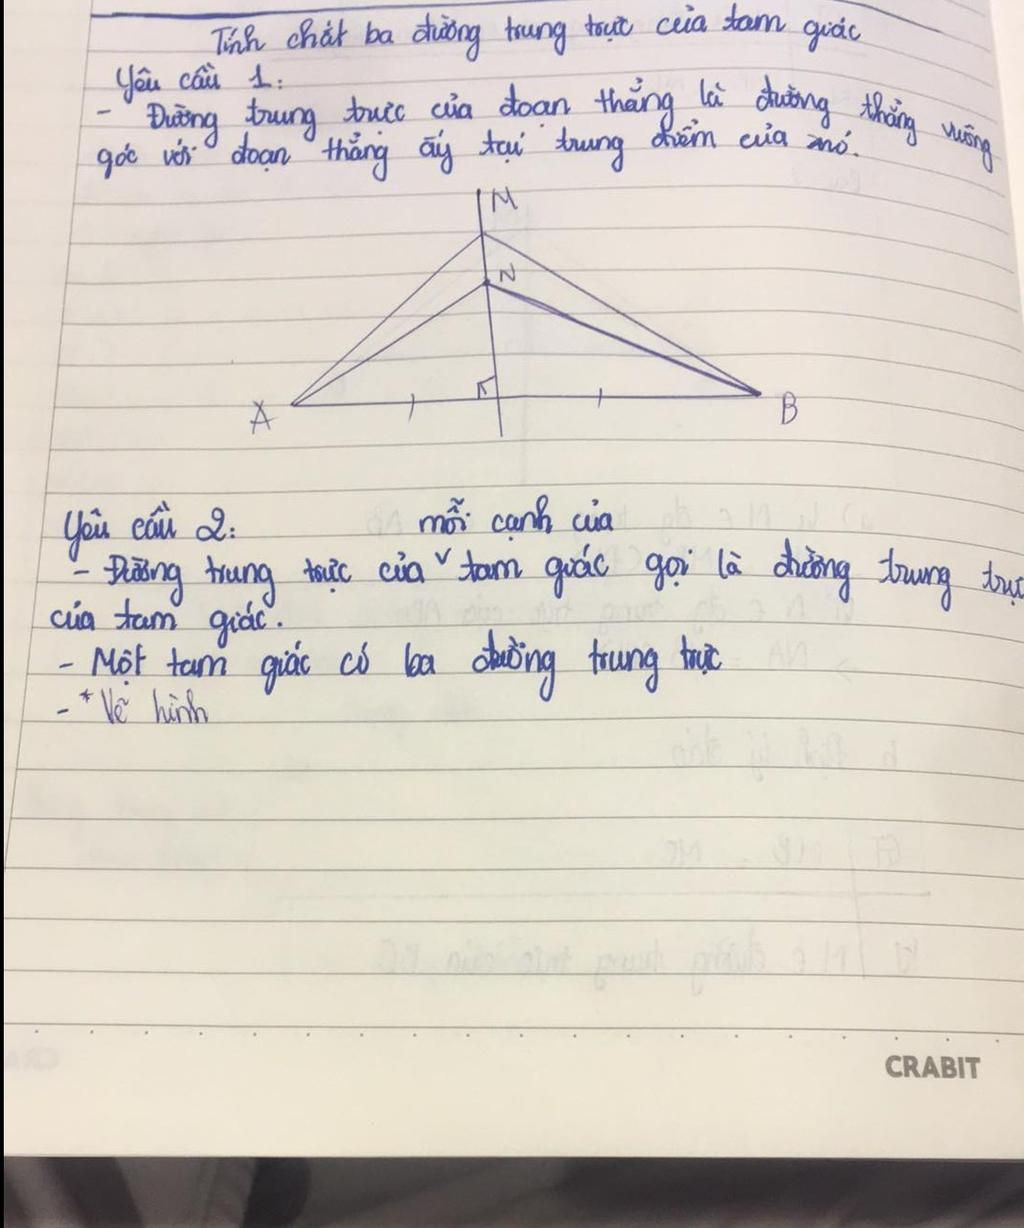 Tính chất ba đường trung trực của tam giác
Yêu cầu 1:
- Đường trung trực của đoạn thẳng là đường thẳng vuông
góc với đoạn thẳng ấy tại trung điểm của nó.
M
N
A
B
Yêu cầu 2:
mỗi cạnh của
- Đường trung trực của v tam giác gọi là đường trung trực
của tam giác.
- Một tam giác có ba đường trung trực
- * Vẽ hình
CRABIT